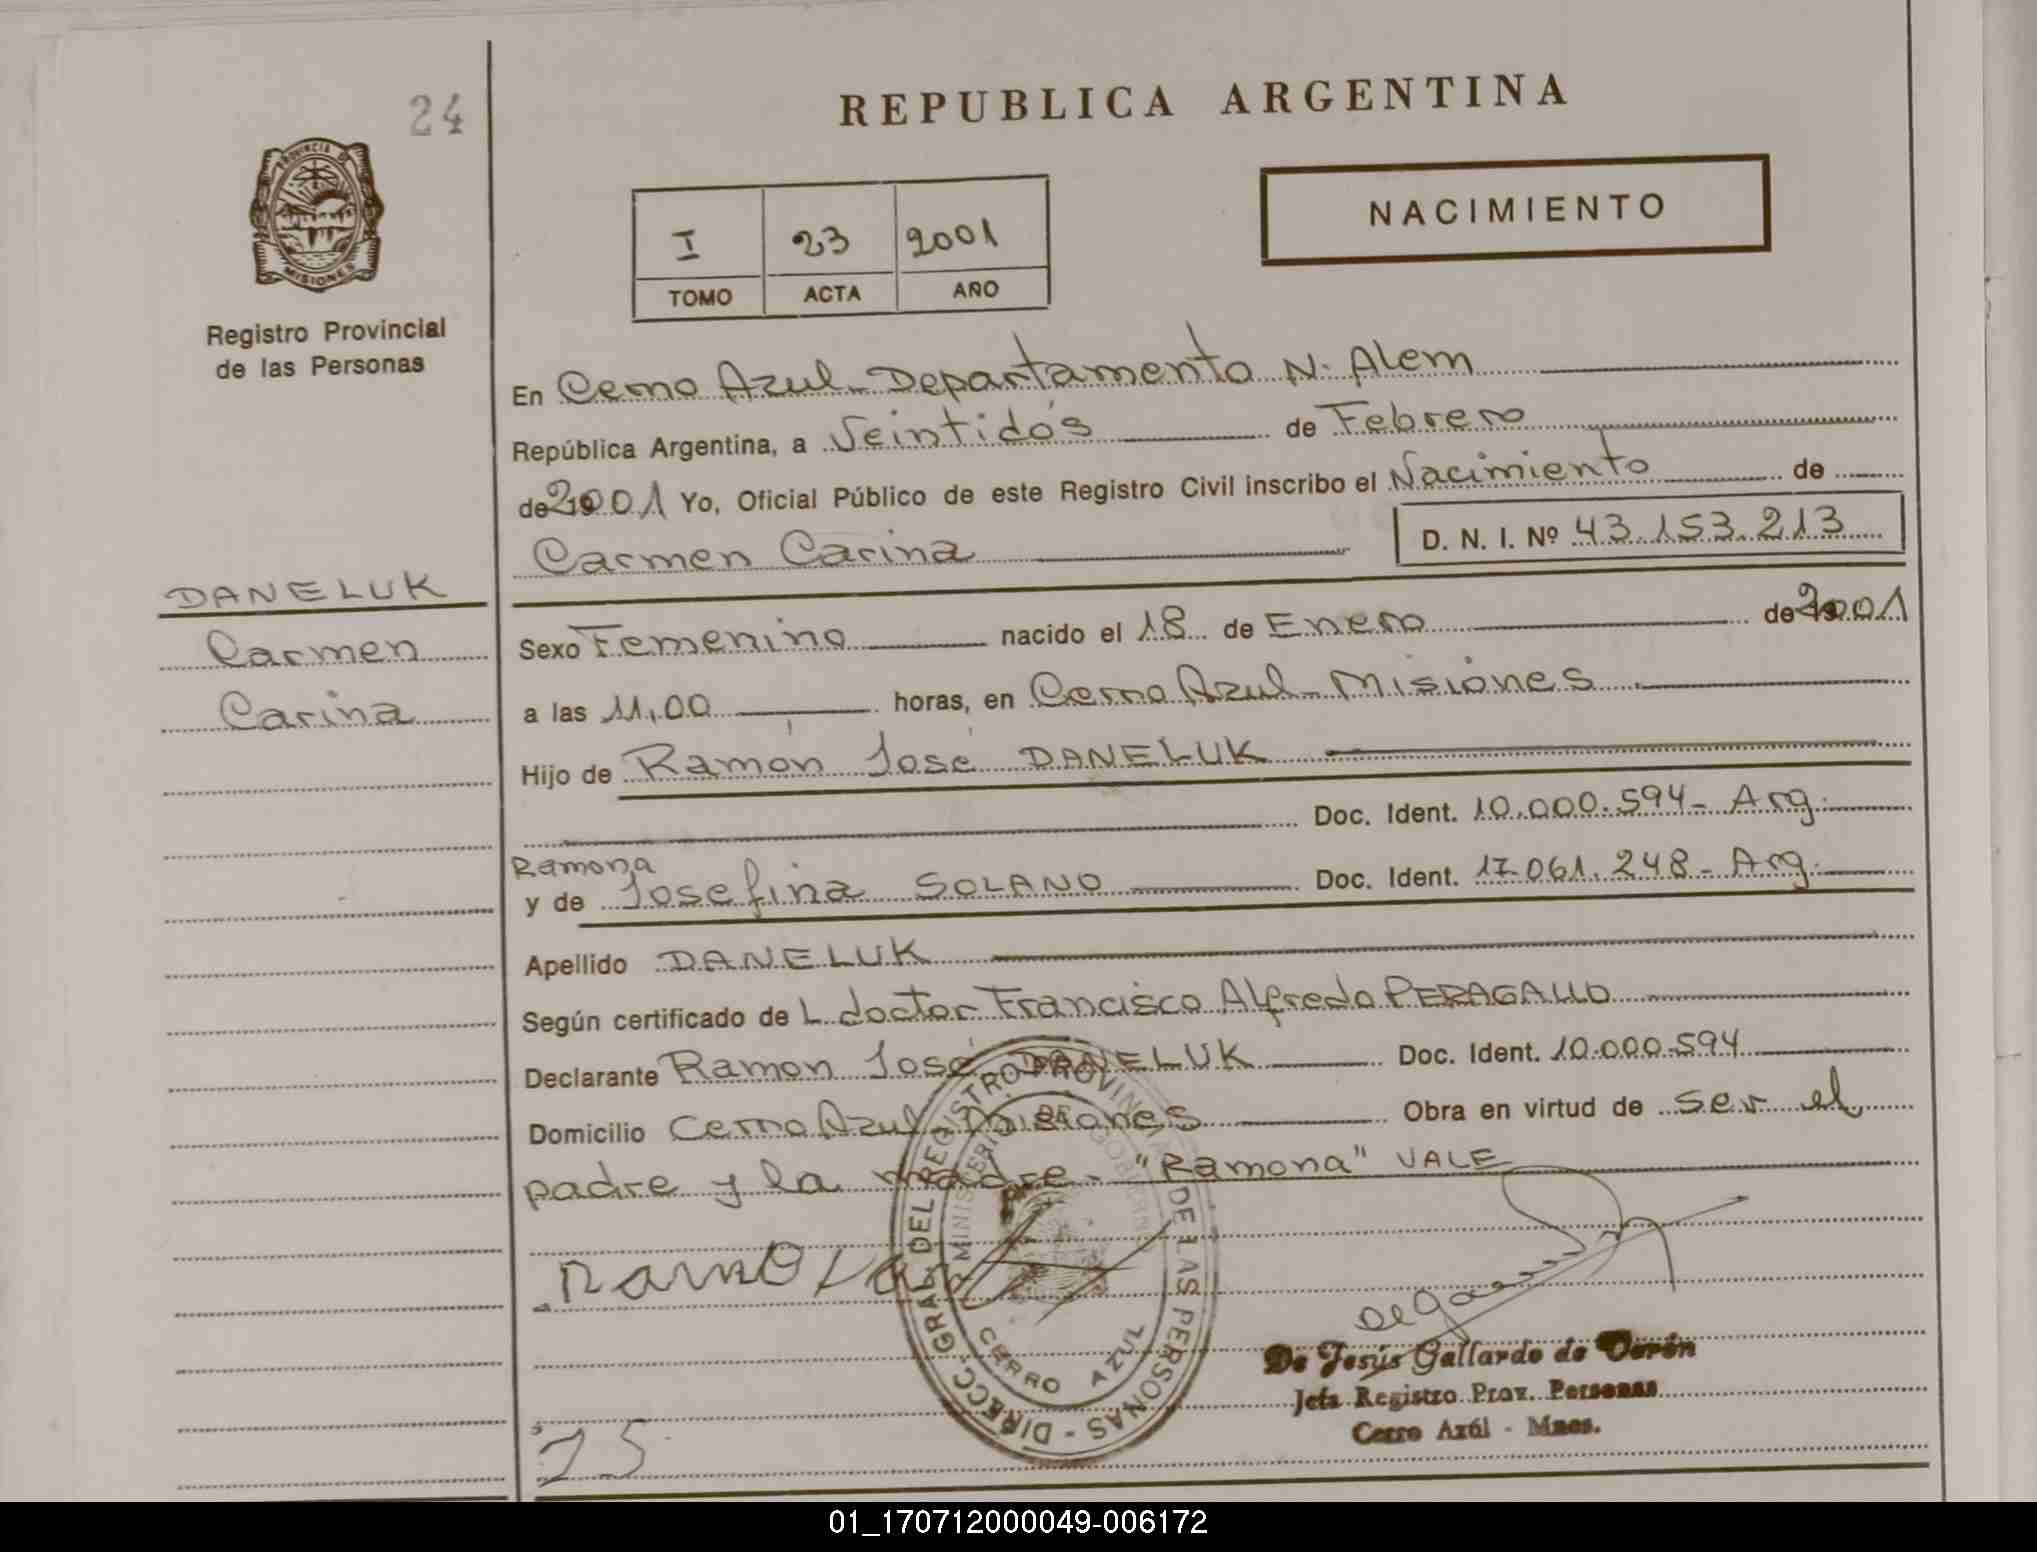 24
REPUBLICA ARGENTINA
PROVINCIA DE
MISIONES
Registro Provincial
de las Personas
I 23 2001
TOMO ACTA AÑO
NACIMIENTO
En Cerro Azul - Departamento N. Alem
República Argentina, a Veintidós de Febrero
de 2001 Yo, Oficial Público de este Registro Civil inscribo el Nacimiento de
Carmen Carina D. N. I. Nº 43.153.213
DANELUK
Carmen
Carina
Sexo Femenino nacido el 18 de Enero de 2001
a las 11,00 horas, en Cerro Azul - Misiones
Hijo de Ramón José DANELUK
Doc. Ident. 10.000.594 - Arg.
Ramona
y de Josefina SOLANO Doc. Ident. 17.061.248 - Arg.
Apellido DANELUK
Según certificado de L doctor Francisco Alfredo PERAGALLO
Declarante Ramon José DANELUK Doc. Ident. 10.000.594
Domicilio Cerro Azul - Misiones Obra en virtud de ser el
padre y la madre - "Ramona" VALE
DIRECC. GRAL. DEL REGISTRO PROVINCIAL DE LAS PERSONAS -
MINISTERIO DE GOBIERNO
CERRO AZUL
De Jesús Gallardo de
Jefa Registro Prov. Personas
Cerro Azúl - Mnes.
01_170712000049-006172